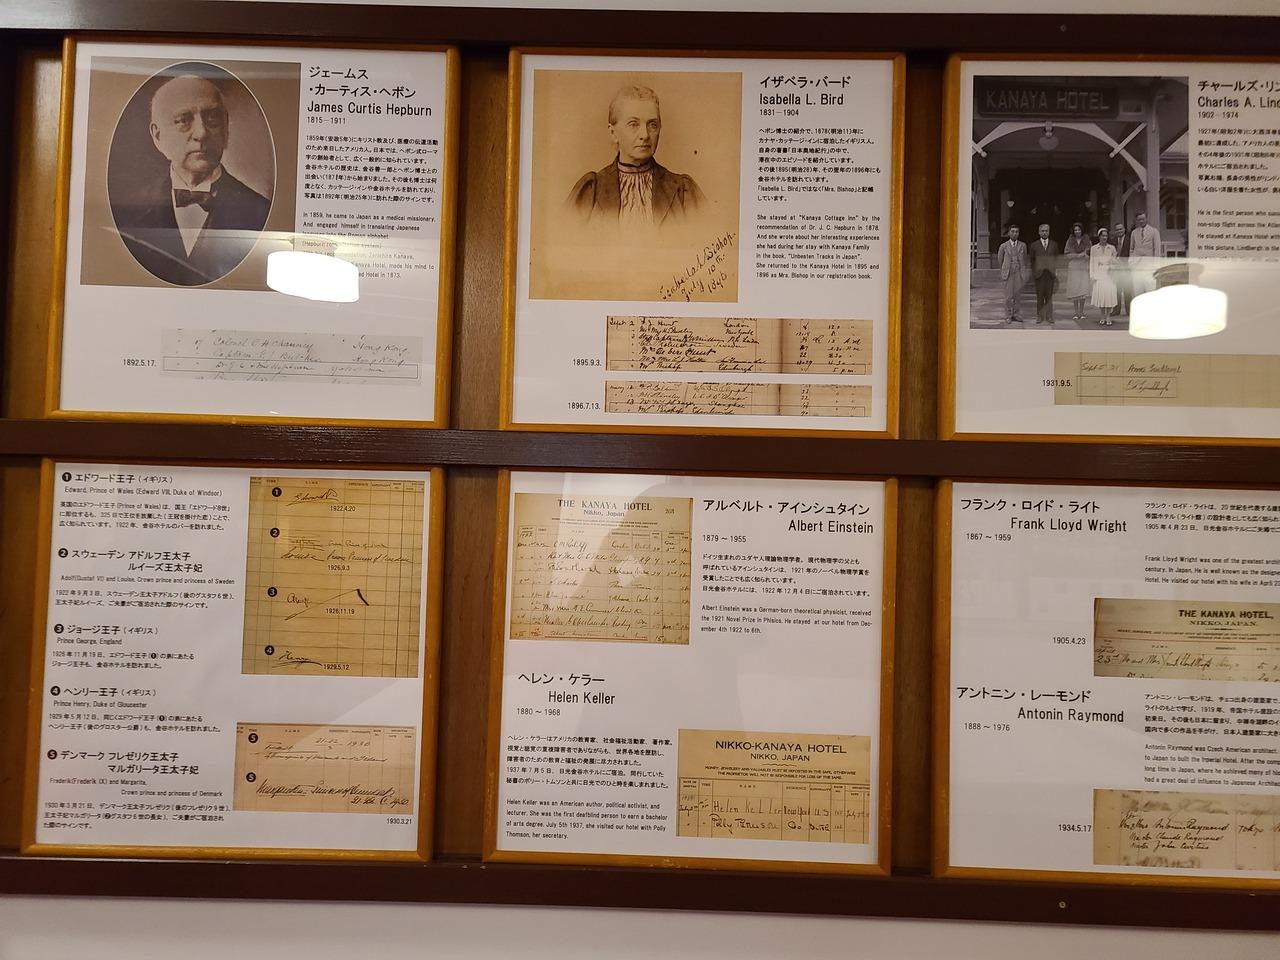 ジェームス
・カーティス・ヘボン
James Curtis Hepburn
1815－1911
1859年(安政5年)にキリスト教及び、医療の伝道活動
のため来日したアメリカ人。日本では、ヘボン式ローマ
字の創始者として、広く一般的に知られています。
金谷ホテルの歴史は、金谷善一郎とヘボン博士との
出会い(1871年)から始まりました。その後も博士は何
度となく、カッテージ・インや金谷ホテルを訪れており、
写真は1892年(明治25年)に訪れた際のサインです。
In 1859, he came to Japan as a medical missionary.
And engaged himself in translating Japanese
Zenichiro Kanaya,
Kanaya Hotel, made his mind to
Hotel in 1873.
1892.5.17.
イザベラ・バード
Isabella L. Bird
1831－1904
ヘボン博士の紹介で、1878(明治11)年に
カナヤ・カッテージ・インに宿泊したイギリス人。
自身の著書「日本奥地紀行」の中で、
滞在中のエピソードを紹介しています。
その後1895(明治28)年、その翌年の1896年にも
金谷ホテルを訪れています。
「Isabella L. Bird」ではなく「Mrs. Bishop」と記帳
しています。
She stayed at "Kanaya Cottage Inn" by the
recommendation of Dr. J. C. Hepburn in 1878.
And she wrote about her interesting experiences
she had during her stay with Kanaya Family
in the book, "Unbeaten Tracks in Japan".
She returned to the Kanaya Hotel in 1895 and
1896 as Mrs. Bishop in our registration book.
1895.9.3.
1896.7.13.
KANAYA HOTEL
チャールズ・リン
Charles A. Lind
1902－1974
He is the first person who su
non-stop flight across the Atla
He stayed at Kanaya Hotel wit
in this picture, Lindbergh is the
1931.9.5.
❶ エドワード王子 (イギリス)
Edward, Prince of Wales (Edward VIII, Duke of Windsor)
英国のエドワード王子(Prince of Wales)は、国王「エドワード8世」
に即位するも、325日で王位を放棄した(王冠を掛けた恋)ことで、
広く知られています。1922年、金谷ホテルのバーを訪れました。
❷ スウェーデン アドルフ王太子
ルイーズ王太子妃
Adolf(Gustaf VI) and Louise, Crown prince and princess of Sweden
1922年9月3日、スウェーデン王太子アドルフ(後のグスタフ6世)、
王太子妃ルイーズ、ご夫妻がご宿泊された際のサインです。
❸ ジョージ王子 (イギリス)
Prince George, England
1926年11月19日、エドワード王子(❶)の弟にあたる
ジョージ王子も、金谷ホテルを訪れました。
❹ ヘンリー王子 (イギリス)
Prince Henry, Duke of Gloucester
1929年5月12日、同じくエドワード王子(❶)の弟にあたる
ヘンリー王子(後のグロスター公爵)も、金谷ホテルを訪れました。
❺ デンマーク フレゼリク王太子
マルガリータ王太子妃
Frederik(Frederik IX) and Margarita,
Crown prince and princess of Denmark
1930年3月21日、デンマーク王太子フレゼリク(後のフレゼリク9世)、
王太子妃マルガリータ(❷グスタフ6世の長女)、ご夫妻がご宿泊され
た際のサインです。
❶
1922.4.20
❷
1926.9.3
❸
1926.11.19
❹
1929.5.12
❺
❺
1930.3.21
THE KANAYA HOTEL
Nikko, Japan
アルベルト・アインシュタイン
Albert Einstein
1879 ～ 1955
ドイツ生まれのユダヤ人理論物理学者。現代物理学の父とも
呼ばれているアインシュタインは、1921年のノーベル物理学賞を
受賞したことでも広く知られています。
日光金谷ホテルには、1922年12月4日にご宿泊されています。
Albert Einstein was a German-born theoretical physicist, received
the 1921 Novel Prize in Phisics. He stayed at our hotel from Dec-
ember 4th 1922 to 6th.
ヘレン・ケラー
Helen Keller
1880 ～ 1968
ヘレン・ケラーはアメリカの教育家、社会福祉活動家、著作家。
視覚と聴覚の重複障害者でありながらも、世界各地を歴訪し、
障害者のための教育と福祉の発展に尽力されました。
1937年7月5日、日光金谷ホテルにご宿泊。同行していた
秘書のポリー・トムソンと共に日光でのひと時を楽しまれました。
Helen Keller was an American author, political activist, and
lecturer. She was the first deafblind person to earn a bachelor
of arts degree. July 5th 1937, she visited our hotel with Polly
Thomson, her secretary.
NIKKO-KANAYA HOTEL
NIKKO, JAPAN
MONEY, JEWELLERY AND VALUABLES MUST BE DEPOSITED IN THE SAFE, OTHERWISE
THE PROPRIETOR WILL NOT BE RESPONSIBLE FOR LOSS OF THE SAME.
Helen Keller New York
フランク・ロイド・ライト
Frank Lloyd Wright
1867 ～ 1959
フランク・ロイド・ライトは、20世紀を代表する建
帝国ホテル(ライト館)の設計者としても広く知られ
1905年4月23日、日光金谷ホテルにご夫婦でご
Frank Lloyd Wright was one of the greatest arch
century. In Japan, He is well known as the designe
Hotel. He visited our hotel with his wife in April 2
THE KANAYA HOTEL,
NIKKO, JAPAN.
1905.4.23
アントニン・レーモンド
Antonin Raymond
1888 ～ 1976
アントニン・レーモンドは、チェコ出身の建築家で、
ライトのもとで学び、1919年、帝国ホテル建設の
初来日。その後も日本に留まり、中禅寺湖畔の
国内で多くの作品を手がけ、日本人建築家に大き
Antonin Raymond was Czech American architect.
to Japan to built the Imperial Hotel. After the comp
long time in Japan, where he achieved many of h
had a great deal of influence to Japanese Archite
1934.5.17